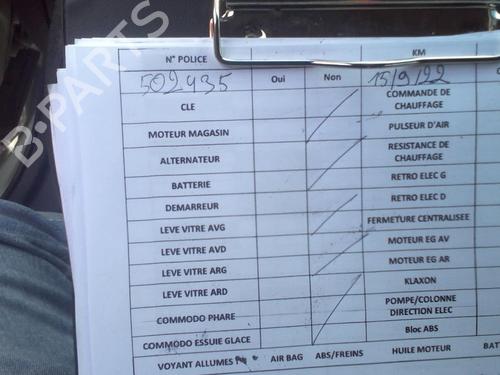 N° POLICE KM
502435 Oui Non 15/9/22
CLE COMMANDE DE CHAUFFAGE
MOTEUR MAGASIN PULSEUR D'AIR
ALTERNATEUR RESISTANCE DE CHAUFFAGE
BATTERIE RETRO ELEC G
DEMARREUR RETRO ELEC D
LEVE VITRE AVG FERMETURE CENTRALISEE
LEVE VITRE AVD MOTEUR EG AV
LEVE VITRE ARG MOTEUR EG AR
LEVE VITRE ARD KLAXON
COMMODO PHARE POMPE/COLONNE DIRECTION ELEC
COMMODO ESSUIE GLACE Bloc ABS
VOYANT ALLUMES AIR BAG ABS/FREINS HUILE MOTEUR BAT
B-PARTS